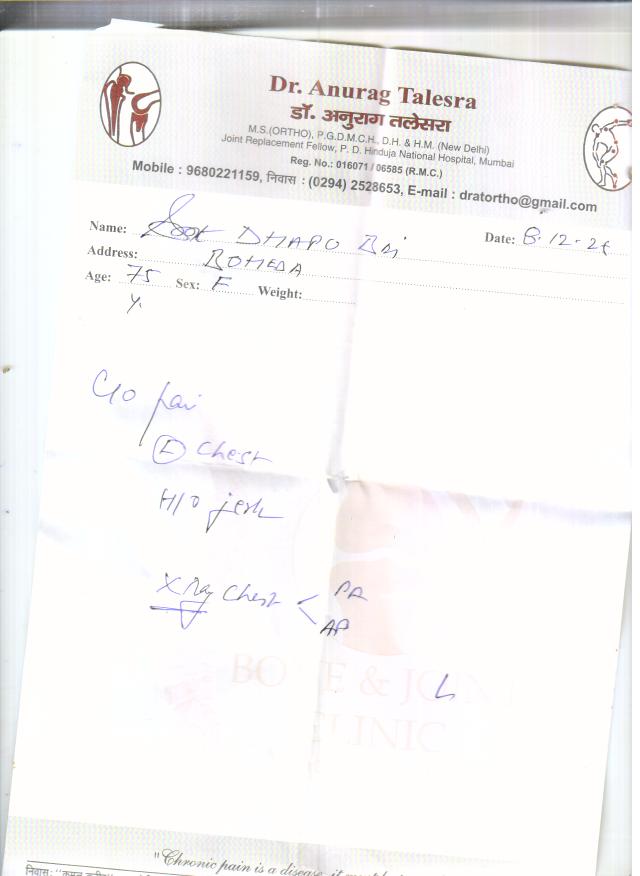 Dr. Anurag Talesra
डॉ. अनुराग तलेसरा
M.S.(ORTHO), P.G.D.M.C.H., D.H. & H.M. (New Delhi)
Joint Replacement Fellow, P. D. Hinduja National Hospital, Mumbai
Reg. No.: 016071 / 06585 (R.M.C.)
Mobile : 9680221159, निवास : (0294) 2528653, E-mail : dratortho@gmail.com
Name: DHAPU Bai Date: 8.12.
Address: BOHEDA
Age: 75 Sex: F Weight:
y.
C/O pain
(L) Chest
H/O jerk
X Ray Chest < PA
AP
BONE & JOINT
CLINIC
"Chronic pain is a disease, it
निवास: